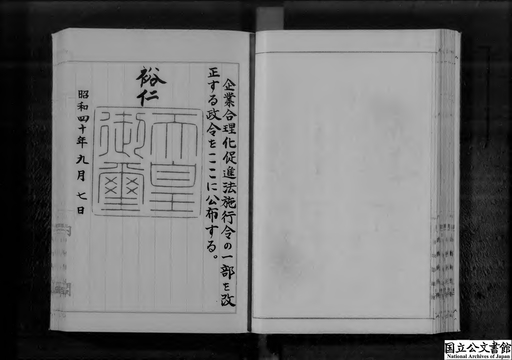 企業合理化促進法施行令の一部を改
正する政令をここに公布する。
裕仁
天皇
御璽
昭和四十年九月七日
国立公文書館
National Archives of Japan